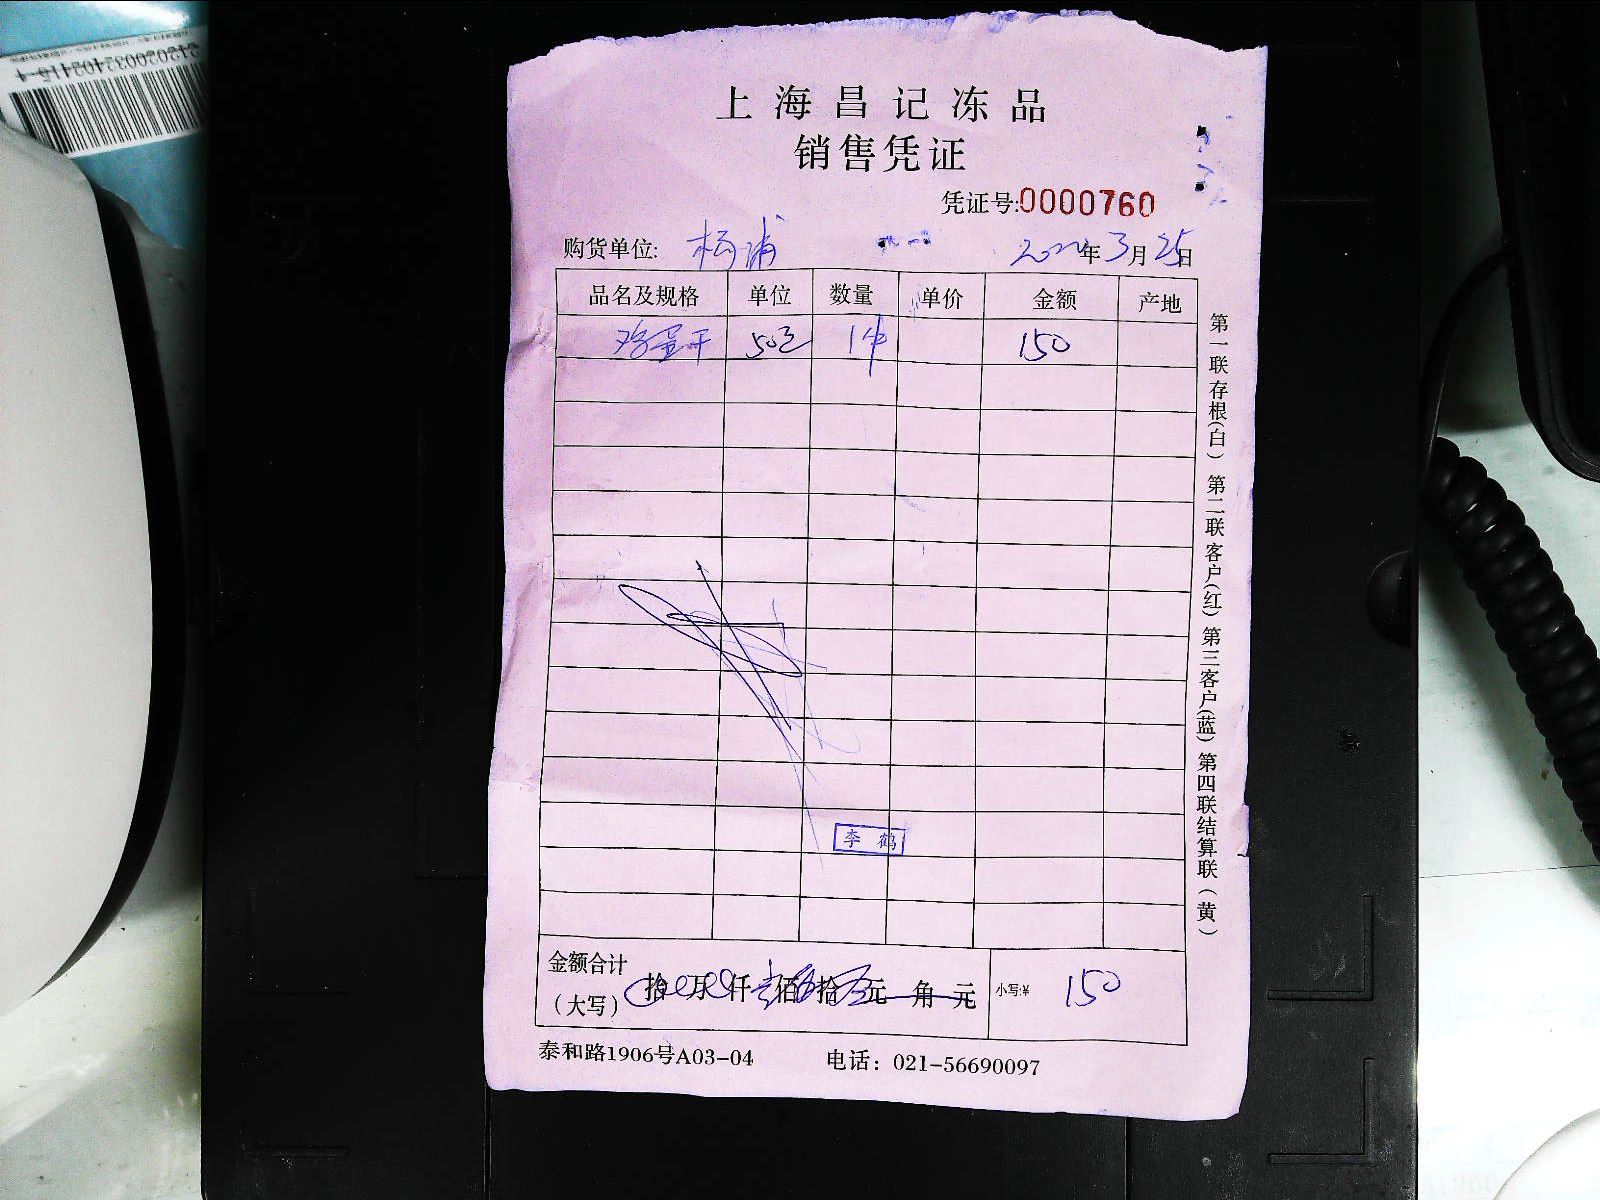 上海昌记冻品
销售凭证
凭证号:0000760
购货单位: 杨浦 2022年3月25日
品名及规格 单位 数量 单价 金额 产地
鸡蛋干 50包 1件 150
李鹤
金额合计
(大写) 拾 万 仟 壹佰伍拾 元 角 元 小写:¥ 150
泰和路1906号A03-04 电话: 021-56690097
第一联存根(白) 第二联客户(红) 第三客户(蓝) 第四联结算联(黄)